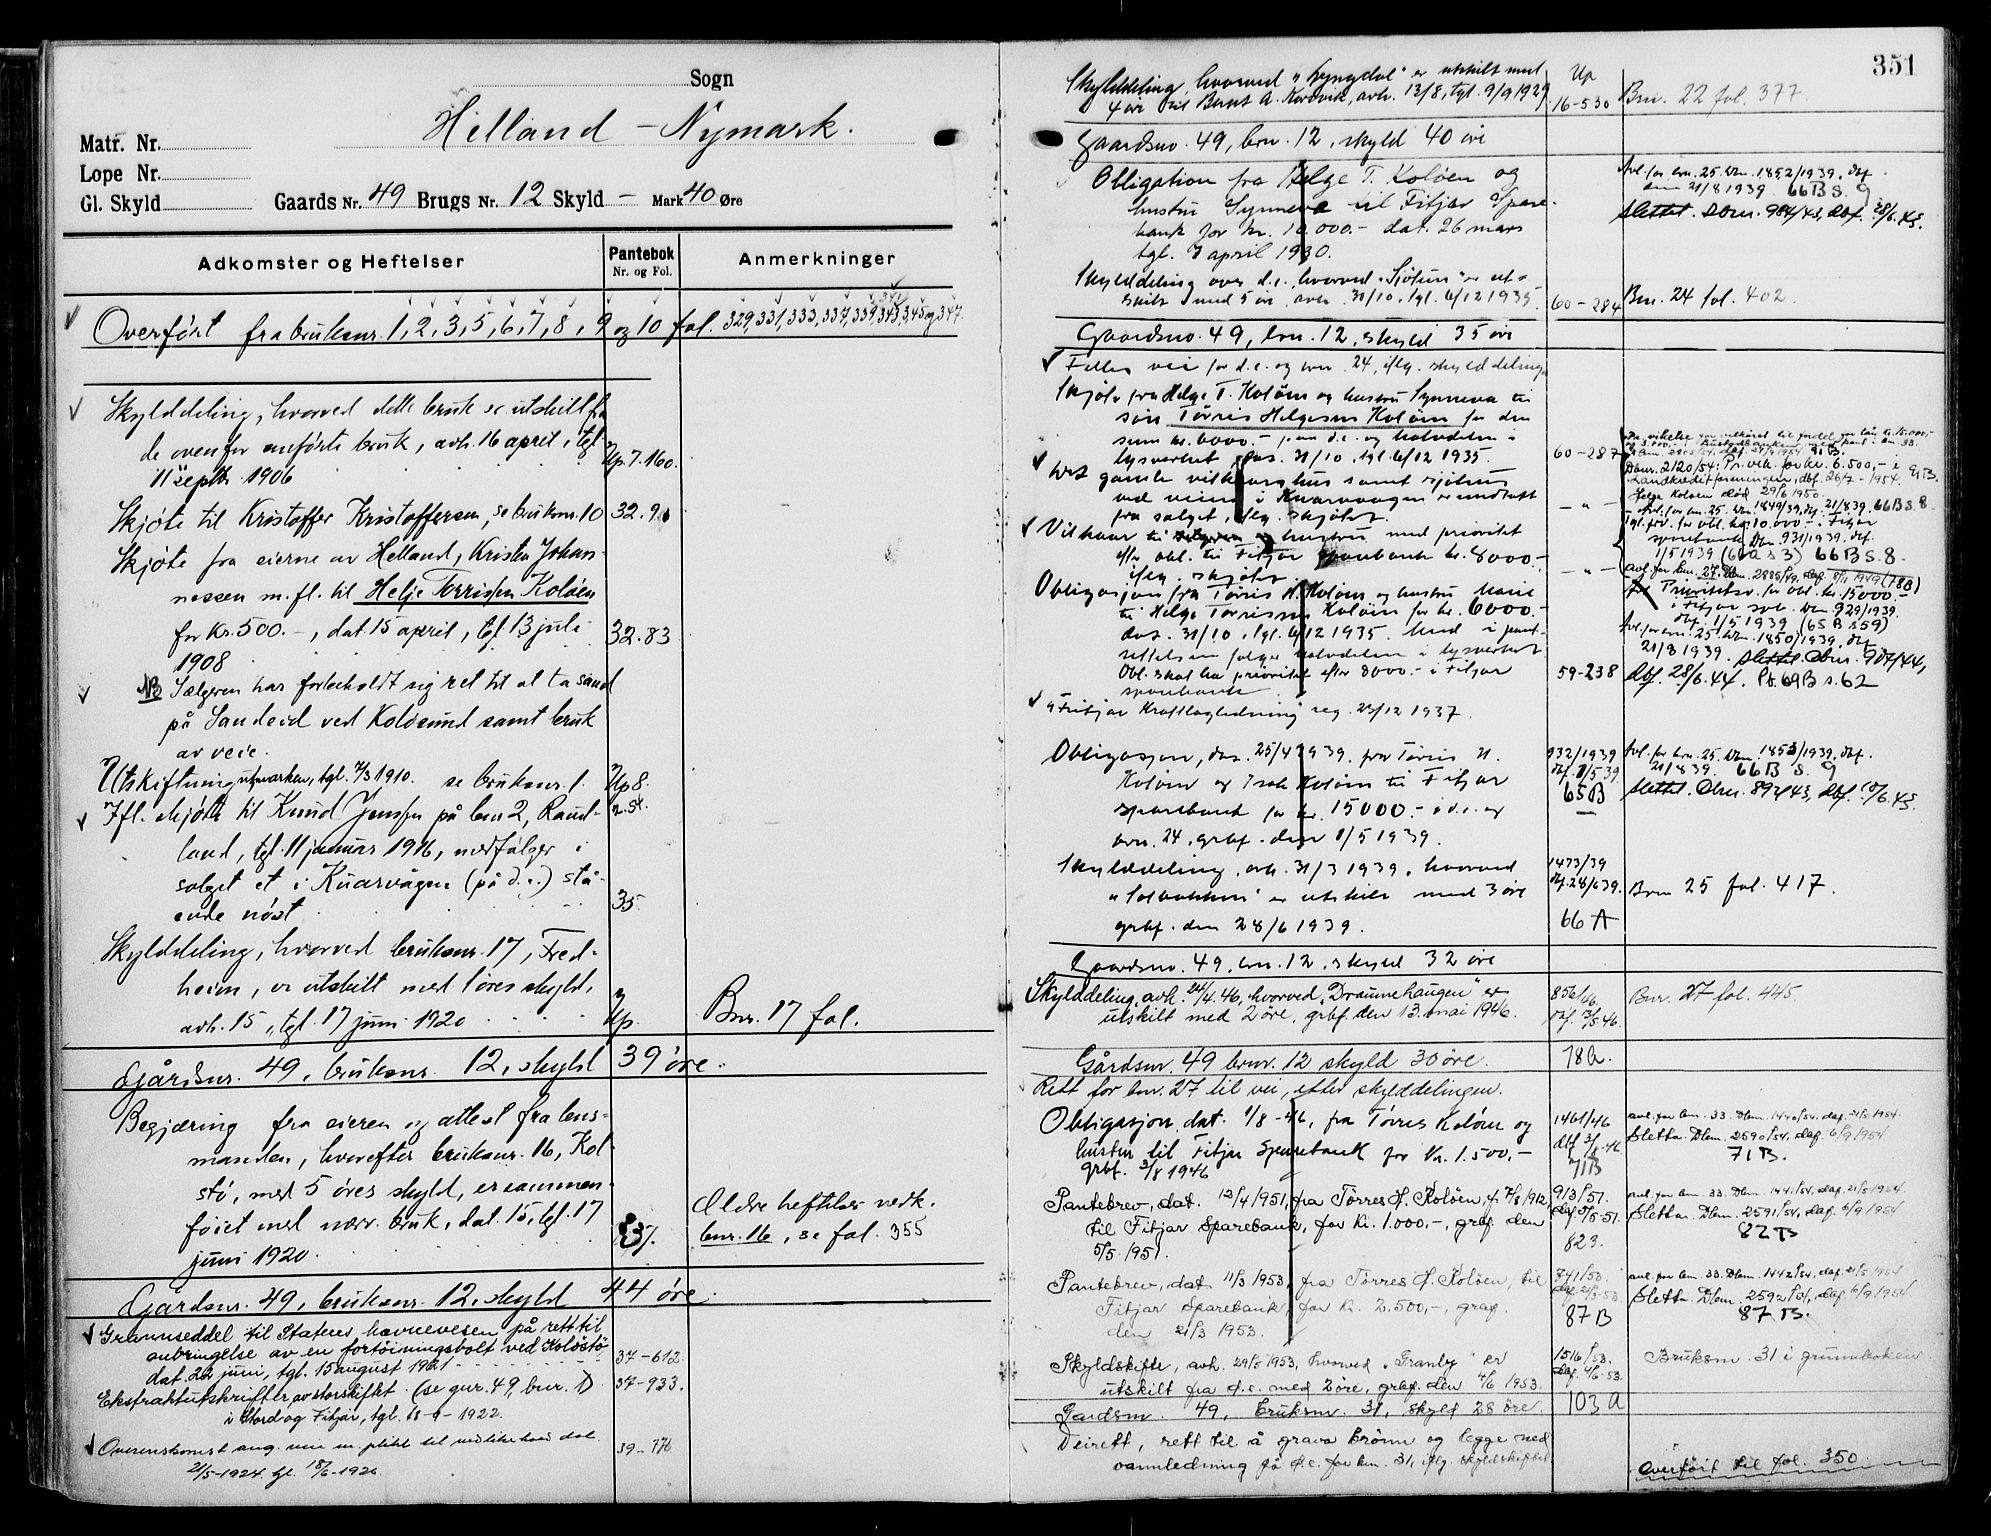 Sogn
Helland - Nymark.
Matr. Nr.
Lope Nr.
Gl. Skyld
Gaards Nr. 49 Brugs Nr. 12 Skyld - Mark 40 Øre
Adkomster og Heftelser
Pantebok
Nr. og Fol.
Anmerkninger
Overført fra bruksnr. 1, 2, 3, 5, 6, 7, 8, 9 og 10 fol. 329, 331, 333, 337, 339, 343, 345 og 347.
Skylddeling, hvorved dette bruk er utskilt fra
de ovenfor anførte bruk, avh. 16 april, tgl.
11 septbr. 1906 Up. 7. 160.
Skjøte til Kristoffer Kristoffersen, se bruksnr. 10 32.91
Skjøte fra eierne av Helland, Kristen Johan-
nessen m. fl. til Helje Torrissen Koløen
for Kr. 500.-, dat. 15 april, tgl. 13 juli
1908 32.83
NB Sælgeren har forbeholdt sig ret til at ta sand
på Sandeid ved Koløsund samt bruk
av veie.
Utskiftning utmarken, tgl. 4/3 1910. se bruksnr. 1. Up 8.
Ifl. skjøte til Knud Jenssen på bnr 2, Rand-
land, tgl. 11 januar 1916, medfølger i
salget et i Kuarvågen (på d.e.) stå-
ende nöst 35.
Skylddeling, hvorved bruksnr. 17, Fred-
heim, er utskilt med 1 öres skyld,
avh. 15, tgl. 17 juni 1920 Up. Bnr. 17 fol.
Gårdsnr. 49, bruksnr. 12, skyld 39 øre.
Begjæring fra eieren og attest fra lens-
manden, hvorefter bruksnr. 16, Kol-
stø, med 5 öres skyld, er sammen-
føiet med nærv. bruk, dat. 15, tgl. 17
juni 1920.
Ældre heftelser vedk.
bnr. 16, se fol. 355
Gårdsnr. 49, bruksnr. 12, skyld 44 øre.
Grannseddel til Statens havnevesen på rett til
anbringelse av en fortöiningsbolt ved Koløstö
dat. 22 juni, tgl. 15 august 1921 37-612.
Ekstraktutskrifter av storskiftet (se gnr. 49, bnr. 1) 37-933.
i Stord og Fitjar, tgl. 1922.
Overenskomst ang. vei m plikt til vedlikehold dat.
21/5-1924. tgl. 18/6-1926 39-776
351
Skylddeling, hvorved "Lyngdal" er utskilt med
4 øre til Bernt A. Kvervik, avh. 13/8, tgl. 9/9 1929 Up 16-530 Bnr. 22 fol. 377.
Gaardsno. 49, bnr. 12, skyld 40 øre
Obligation fra Helge T. Koløen og
hustru Synneva til Fitjar Spare-
bank for kr. 10.000.- dat. 26 mars
tgl. 7 april 1930.
Avl. for bnr. 25. Dbnr. 1852/1939, dbf.
den 21/8 1939. 66 B s. 9
Slettet. Dbnr. 984/43, dbf. 28/6.43.
Skylddeling over d.e. hvorved "Sjötun" er ut-
skilt med 5 øre avh. 31/10, tgl. 6/12 1935. 60-284 Bnr. 24 fol. 402.
Gaardsno. 49, bnr. 12, skyld 35 øre
Felles vei for d.e. og bnr. 24, iflg. skylddelingen
Skjöte fra Helge T. Kolöen og hustru Synneva til
søn Tørris Helgesen Koløen for den
sum kr. 6000.- paa d.e. og halvdelen i
lysverket, dat. 31/10, tgl. 6/12 1935. 60-287
Det gamle vilkaarshus samt sjøhus
ved veien i Kuarvaagen er undtatt
fra salget, iflg. skjötet. - " -
Vilkaar til Helgesen og hustru med prioritet
efter obl. til Fitjar sparebank kr. 8000.-
iflg. skjøtet - " -
Helge Koløen död 29/6 1950.
Dbnr. 2120/54: Pr. vik. for kr. 6.500,- i
Landkreditforeningen, dbf. 26/7-1954. 91 B.
Avl. for bnr. 25. Dbnr. 1849/39, dbf. 21/8 39. 66 B s. 8.
Tgl. prv. for obl. kr. 10.000.- Fitjar
sparebank Dbnr. 931/1939. dbf.
1/5 1939 66 B s. 8.
Obligasjon fra Tørris H. Koløen og hustru Marie
til Helge Torrissen Koløen for kr. 6000.-
dat. 31/10, tgl. 6/12 1935. Med i pant-
settelsen følger halvdelen i lysverket
Obl. skal ha prioritet efter 8000.- i Fitjar
sparebank 59-238
Prioritetsv. for obl. kr. 15000.-
i Fitjar spb. Dbn 929/1939.
dbf. 1/5 1939 (65 B s 59)
Avl. for bnr. 25. Dbnr. 1850/1939, dbf
21/8 1939. Slettet. Dbnr. 907/44,
dbf. 28/6.44. Pb. 69B s. 62
"Fitjar Kraftlagledning" reg. 23/12 1937.
Obligasjon, dat. 25/4 1939. fra Tørris H.
Koløen og Isak Koløen til Fitjar
sparebank for kr. 15000.- i d.e. og
bnr. 24, grbf. den 1/5 1939.
932/1939
dbf. 1/5 39
65 B
Avl. for bnr. 25. Dbnr. 1853/1939, dbf.
21/8 39. 66 B s. 9
Slettet. Dbnr. 892/43, dbf. 10/6.43.
Skylddeling, avh. 31/3 1939, hvorved
"Solbakken" er utskilt med 3 øre
grbf. den 28/6 1939.
1473/39
dbf. 28/6 39.
66 A
Bnr 25 fol. 417.
Gaardsno. 49, bnr. 12, skyld 32 øre
Skylddeling, avh. 24/4.46, hvorved "Draumehaugen" er
utskilt med 2 øre, grbf. den 13. mai 1946.
856/46.
dbf. 13/5.46.
Bnr. 27 fol. 445.
Gårdsnr. 49 bnr. 12 skyld 30 øre. 78 a.
Rett for bnr. 27 til vei, etter skylddelingen.
Obligasjon, dat. 1/8-46, fra Tørres Koløen og
hustru til Fitjar Sparebank for Kr. 1.500,-
grbf. 3/8 1946
1461/46
dbf 3/8.46
71 B
avl. for bnr. 33. Dbnr. 1440/54, dag. 21/5 1954.
Sletta. Dbnr. 2590/54, dag. 6/9 1954.
71 B.
Pantebrev, dat. 12/4 1951, fra Tørres H. Koløen, f. 7/8 1912,
til Fitjar Sparebank, for kr. 1.000,-, grbf. den
5/5 1951.
913/51.
dag. 5/5-51.
82 B.
avl. for bnr. 33. Dbnr. 1441/54, dag. 21/5 1954.
Sletta. Dbnr. 2591/54, dag. 6/9 1954
82 B
Pantebrev, dat. 11/3 1953, fra Tørres H. Koløen, til
Fitjar Sparebank, for kr. 2.500,-, grag.
den 21/3 1953.
841/53.
dag. 21/3-53.
87 B
avl. for bnr. 33. Dbnr. 1442/54, dag. 21/5 1954
Sletta. Dbnr. 2592/54, dag. 6/9 1954.
87 B.
Skyldskifte, avh. 29/5 1953, hvorved "Granly" er
utskilt fra d.e. med 2 øre, grag. den 4/6 1953.
1516/53.
dag. 4/6-53.
Bruksnr. 31 i grunnboken
Gardsnr. 49, Bruksnr. 31, skyld 28 øre. 103 a
Veirett, rett til å grava brönn og legge ned
vannledning på d.e. for bnr. 31, iflg. skyldskiftet
Overført til fol. 350.